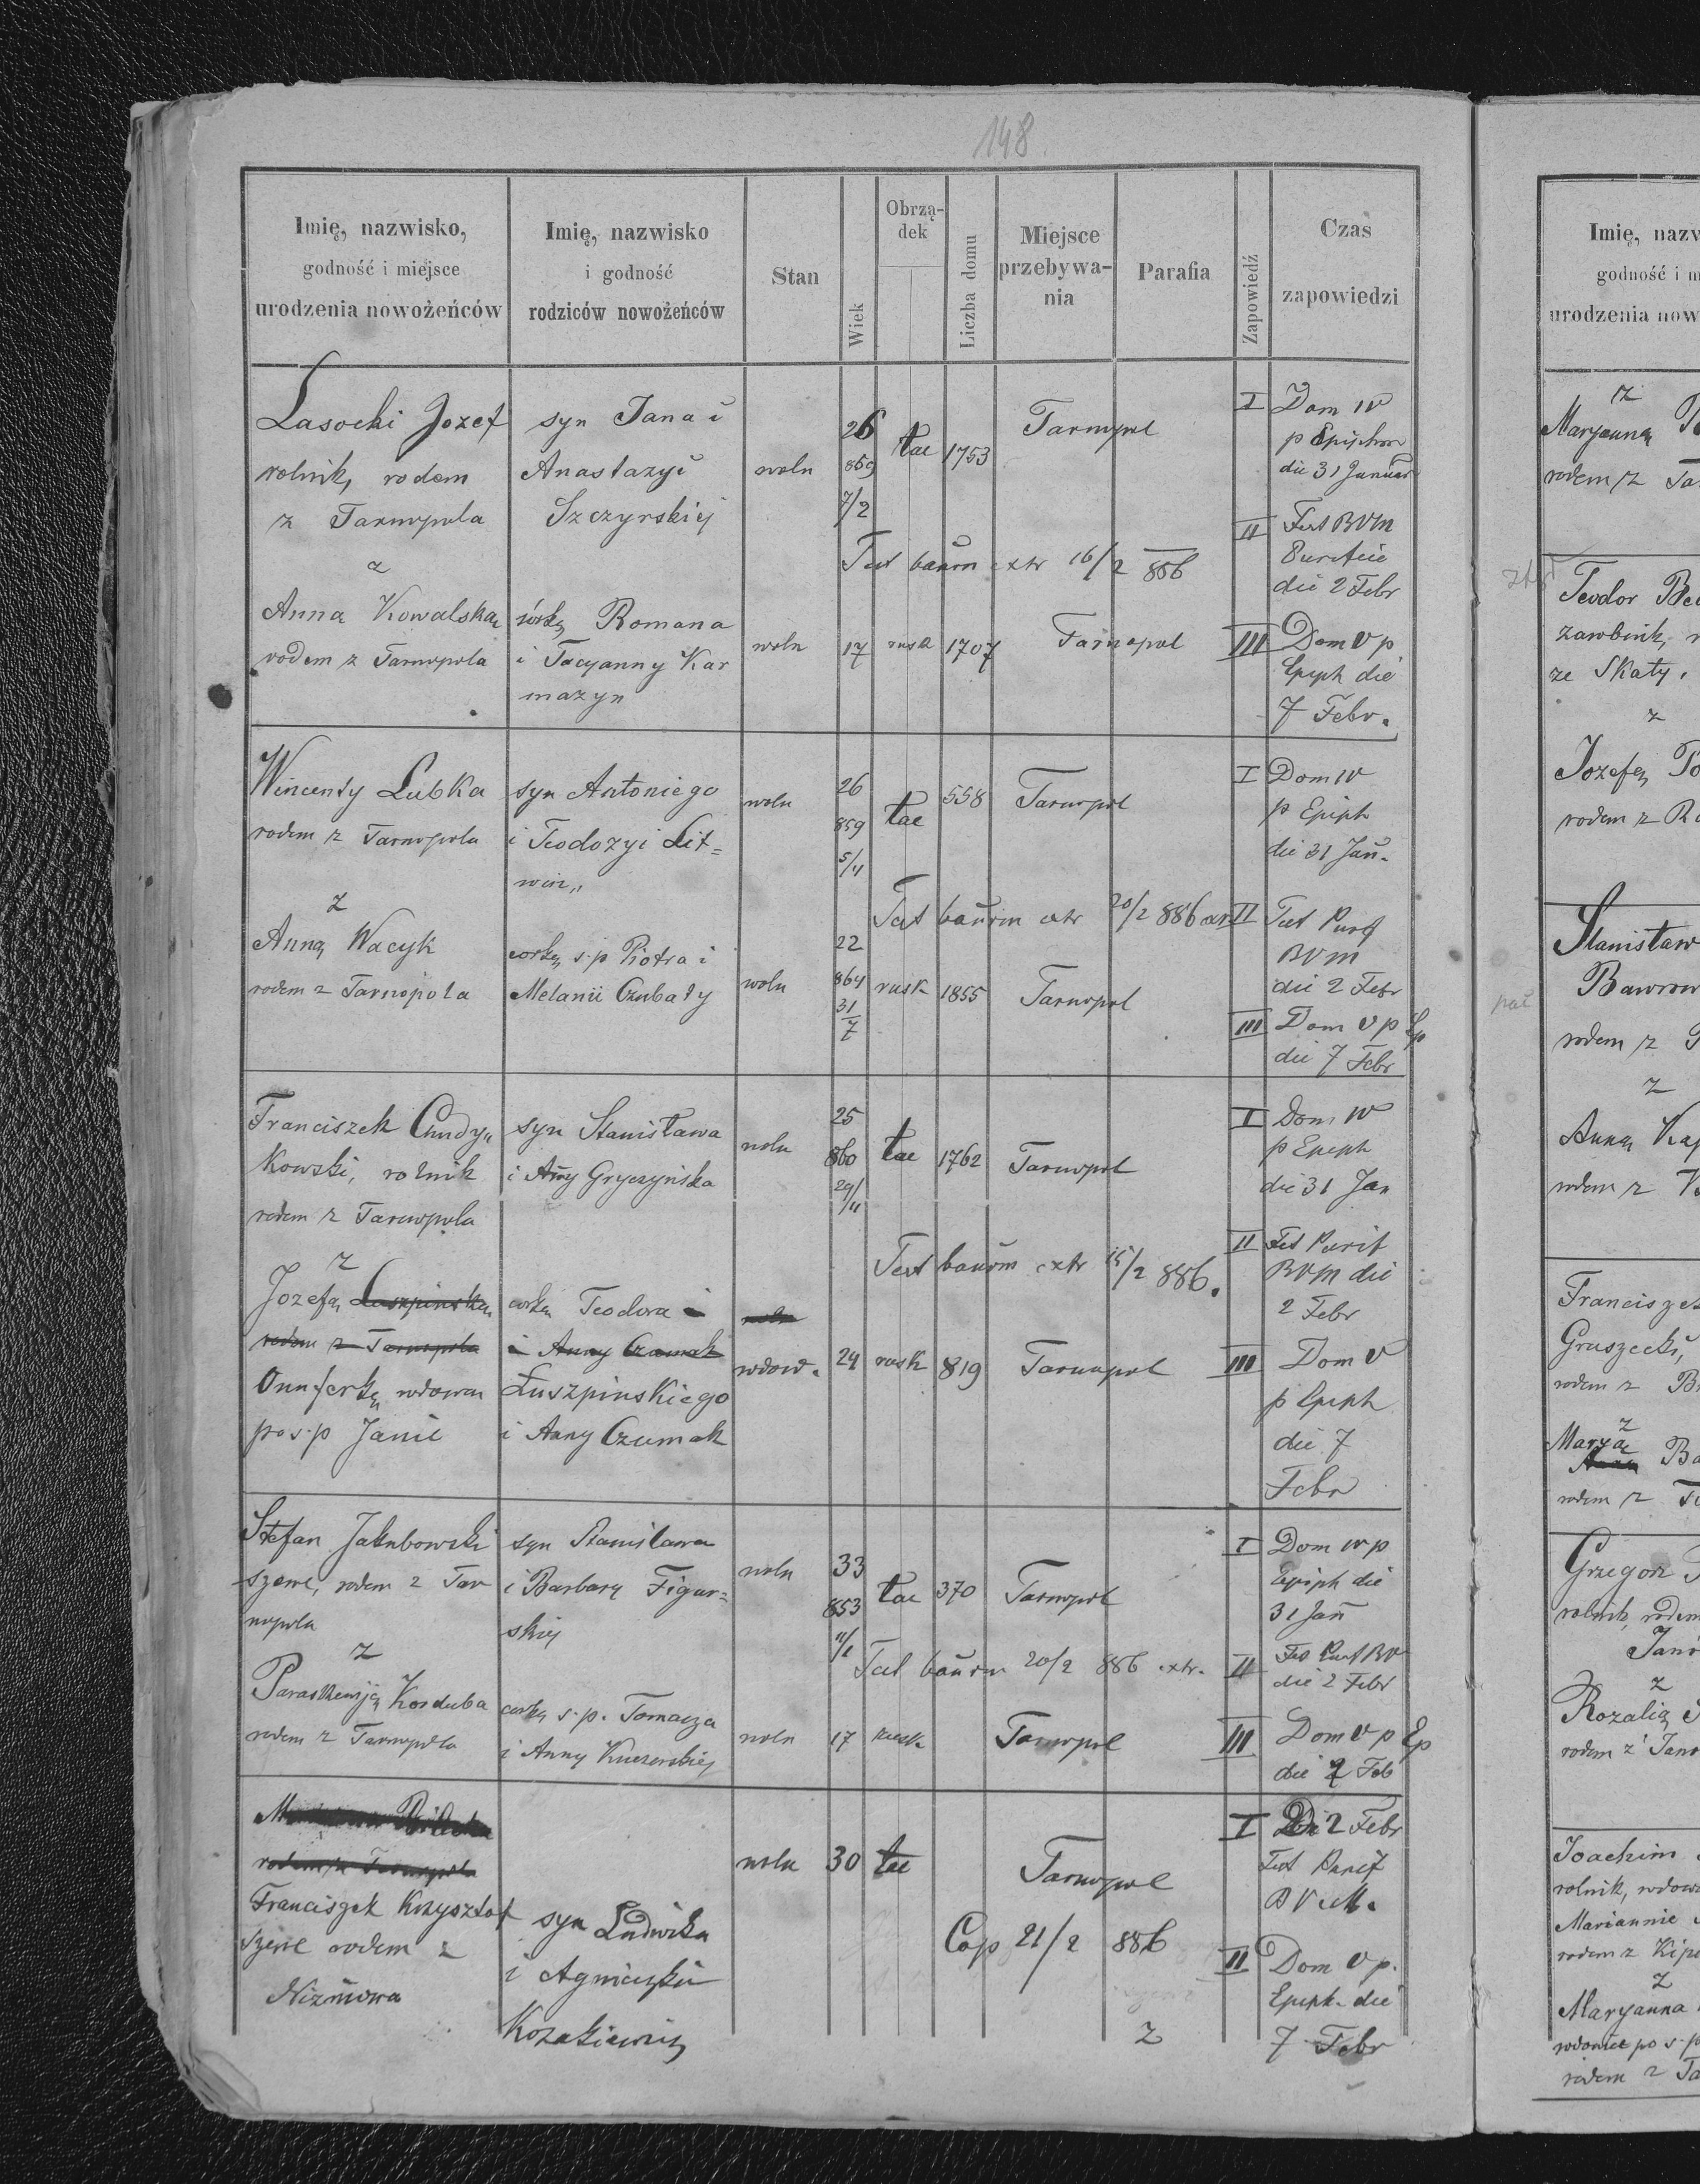 148
Imię, nazwisko,
godność i miejsce
urodzenia nowożeńców
Imię, nazwisko
i godność
rodziców nowożeńców
Stan
Wiek
Obrzą-
dek
Liczba domu
Miejsce
przebywa-
nia
Parafia
Zapowiedź
Czas
zapowiedzi
Lasocki Jozef
rolnik, rodem
z Tarnopola
z
Anna Kowalska
rodem z Tarnopola
syn Jana i
Anastazyi
Szczyrskiej
córką Romana
i Tacyanny Kar
mazyn
woln
woln
26
859
7/2
łac
1753
Tarnopol
Test baňom extr 16/2 886
17
rusk
1707
Tarnopol
I Dom IV
p Epiphan
die 31 Januar
II Fest BVM
die 2 Febr
III Dom V p
Epiph die
7 Febr.
Wincenty Lubka
rodem z Tarnopola
z
Anną Wacyk
rodem z Tarnopola
syn Antoniego
i Teodozyi Lit=
win"
corką s.p Piotra i
Melanii Czubaty
woln
woln
26
859
5/11
łac
558
Tarnopol
Test baňom extr 20/2 886
22
864
31
7
rusk
1855
Tarnopol
I Dom IV
p Epiph
die 31 Jan.
II Fest Purif
BVM
die 2 Febr
III Dom V p Ep
die 7 Febr
Franciszek Chudy"
kowski, rolnik
rodem z Tarnopola
z
Jozefą Łuszpinską
rodem z Tarnopola
Onuferką wdową
po s.p Janie
syn Stanisława
i Anny Gryczyńska
corką Teodora i
i Anny Czumak
Łuszpinskiego
i Anny Czumak
woln
woln
wdow.
25
860
29/11
łac
1762
Tarnopol
Test baňom extr 15/2 886.
24
rusk
819
Tarnopol
I Dom IV
p Epiph
die 31 Jan
II Fest Purif
BVM die
2 Febr
III Dom V
p Epiph
die 7
Febr
Stefan Jakubowski
szewc, rodem z Tar
nopola
z
Paraskewiją Korduba
rodem z Tarnopola
syn Stanisława
i Barbary Figur=
skiej
corką s.p. Tomasza
i Anny Kuczerskiej
woln
woln
33
853
łac
370
Tarnopol
Test baňom 20/2 886 extr.
17
rusk
Tarnopol
I Dom IV p
Epiph die
31 Jan
II Fes Purif BV
die 2 Febr
III Dom V p Ep
die 7 Feb
rodem z Tarnopola
Franciszek Krzysztof
szewc rodem z
Niżniowa
syn Ludwika
i Agnieszki
Kozakiewicz
woln
30
łac
Tarnopol
Cop 21/2 886
z
I Die 2 Febr
Fest Purif
BVM.
II Dom V p.
Epiph. die
7 Febr
Imię, nazw
godność i m
urodzenia now
z
Maryanną
rodem z Ta
Teodor Be
zarobnik, r
ze Skaty.
z
Jozefą
rodem z R
Stanisław
rodem z
z
Anną Ka
rodem z
Franciszek
Gruszecki,
rodem z B
z
Maryą
Anna Ba
rodem z T
Grzegorz
rolnik, rodem
Jano
z
Rozalią
rodem z Jano
Joachim
rolnik, wdow
Mariannie
rodem z Kip
z
Maryanna
wdowie po s.p
rodem z Ta